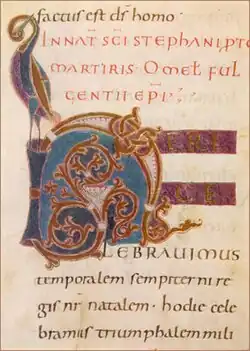 factus est dſ̄ homo·
IN NAT̄ SC̄I STEPHANI, PTO
MARTIRIS· OMEL̄ FUL
GENTII EP̄I;
H ERI
CE
LEBRAVIMUS
temporalem sempiterni re
gis nr̄i natalem· hodie cele
bramus triumphalem mili